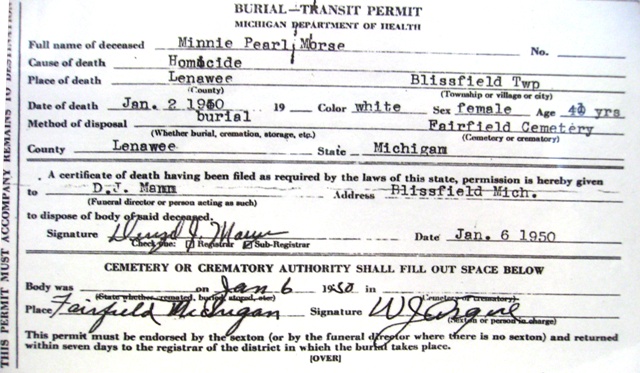 BURIAL—TRANSIT PERMIT
MICHIGAN DEPARTMENT OF HEALTH
Full name of deceased Minnie Pearl Morse No.
Cause of death Homicide
Place of death Lenawee Blissfield Twp
(County) (Township or village or city)
Date of death Jan. 2 1950 19 Color white Sex female Age yrs
Method of disposal burial Fairfield Cemetery
(Whether burial, cremation, storage, etc.) (Cemetery or crematory)
County Lenawee State Michigan
A certificate of death having been filed as required by the laws of this state, permission is hereby given
to D.J. Mann Address Blissfield Mich.
(Funeral director or person acting as such)
to dispose of body of said deceased.
Signature Date Jan. 6 1950
Check one: Registrar Sub-Registrar
CEMETERY OR CREMATORY AUTHORITY SHALL FILL OUT SPACE BELOW
Body was on Jan 6 1950 in
(State whether cremated, buried, stored, etc.) (Cemetery or crematory)
Place Fairfield Michigan Signature
(Sexton or person in charge)
This permit must be endorsed by the sexton (or by the funeral director where there is no sexton) and returned
within seven days to the registrar of the district in which the burial takes place.
[OVER]
THIS PERMIT MUST ACCOMPANY REMAINS TO DESTINATION